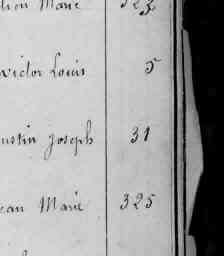 Marie 323
victor Louis 5
ustin joseph 31
ean Marie 325